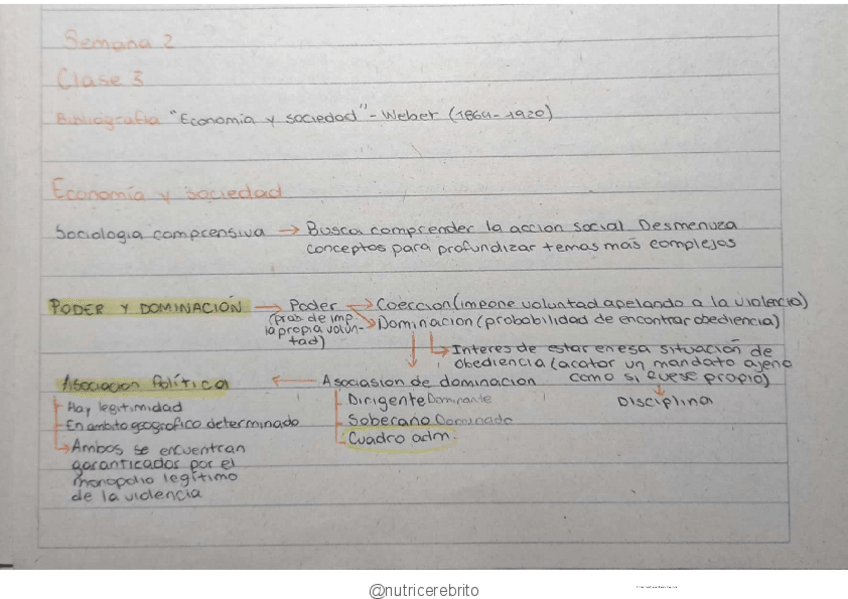 Semana 2
Clase 3
Bibliografia "Economia y sociedad" - Weber (1864-1920)
Economía y sociedad
Sociologia comprensiva → Busca comprender la accion social. Desmenuza
conceptos para profundizar temas mas complejos
PODER Y DOMINACIÓN → Poder → Coerción (impone voluntad apelando a la violencia)
(prob. de imp.
la propia volun-
tad)
Dominacion (probabilidad de encontrar obediencia)
Interes de estar en esa situación de
obediencia (acatar un mandato ajeno
como si fuese propio)
Disciplina
Asociacion Política ← Asociasion de dominacion
Dirigente Dominante
Soberano Dominado
Cuadro adm.
Hay legitimidad
En ambito geografico determinado
→ Ambos se encuentran
garanticados por el
monopolio legítimo
de la violencia
@nutricerebrito